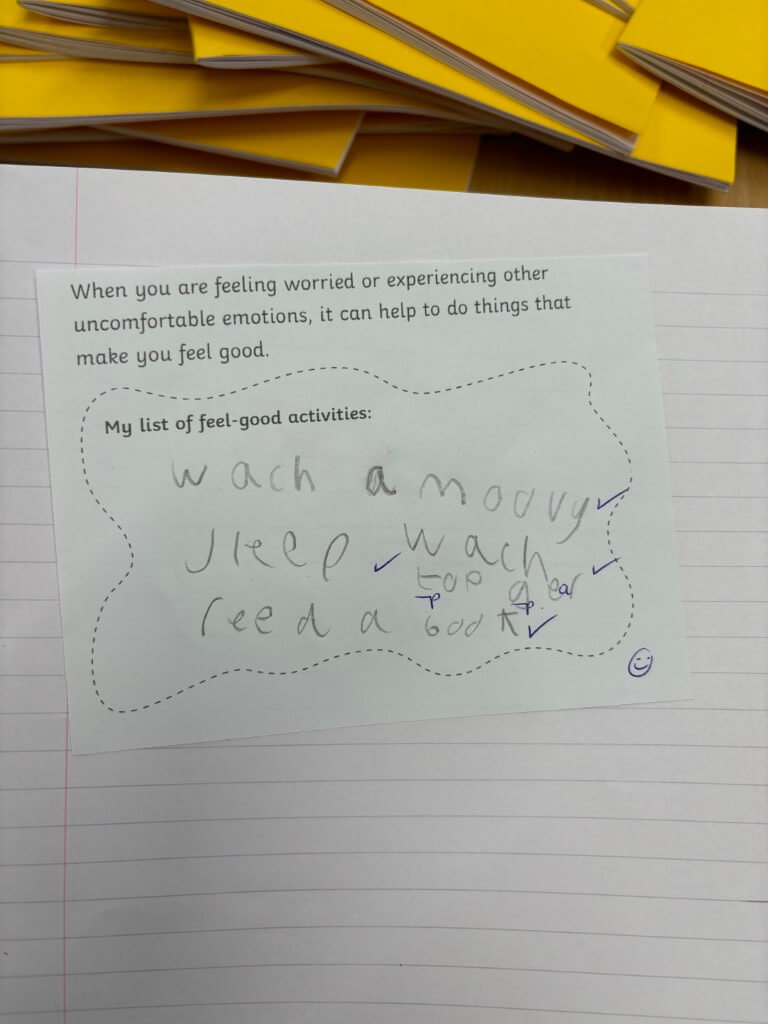 When you are feeling worried or experiencing other
uncomfortable emotions, it can help to do things that
make you feel good.
My list of feel-good activities:
wach a moovy
sleep wach
top gear
reed a book